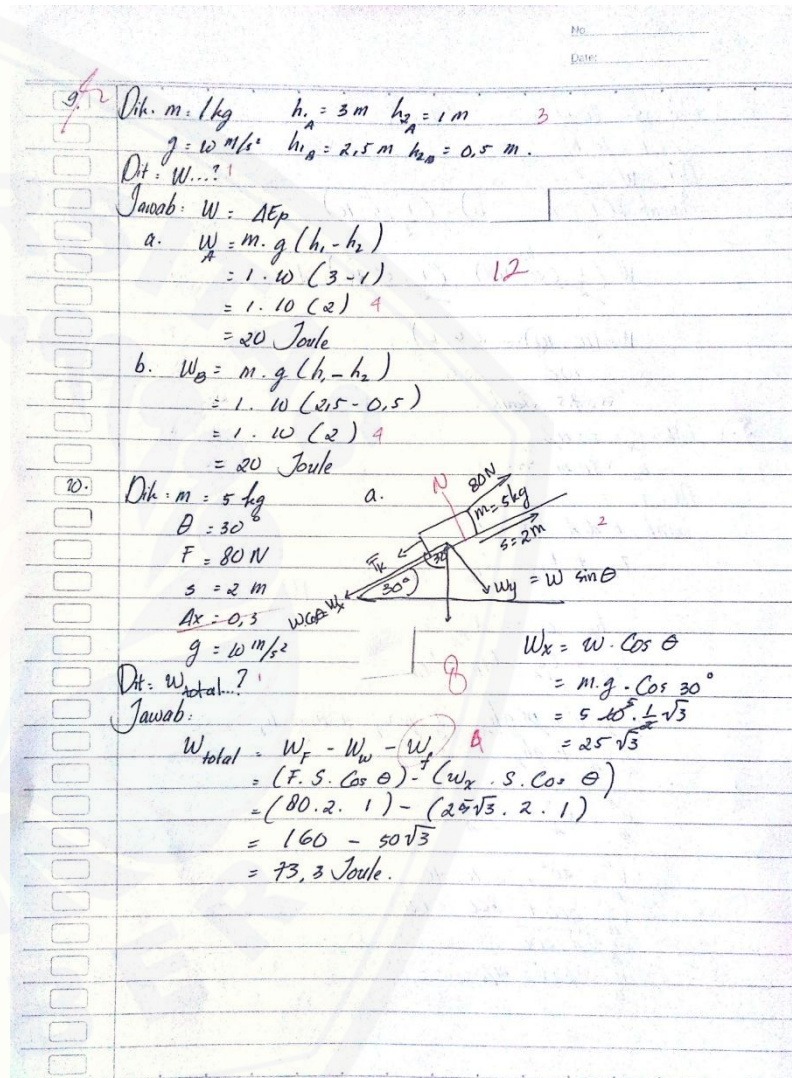 No.
Date:
9. Dik. m = 1 kg h₁A = 3 m h₂A = 1 m 3
g = 10 m/s² h₁B = 2,5 m h₂B = 0,5 m.
Dit : W...? 1
Jawab : W = ΔEp
a. W_A = m. g (h₁ - h₂)
= 1. 10 (3 - 1) 12
= 1. 10 (2) 4
= 20 Joule
b. W_B = m. g (h₁ - h₂)
= 1. 10 (2,5 - 0,5)
= 1. 10 (2) 4
= 20 Joule
10. Dik : m = 5 kg a.
θ = 30°
F = 80 N
s = 2 m
g = 10 m/s²
N
80N
m = 5kg
s = 2m
2
30
30°
Wy = W sin θ
Dit : W total...? 1
8
Jawab :
Wx = w. Cos θ
= m.g. Cos 30°
= 5 10⁵. ½ √3
= 25 √3
W total = W_F - W_w - W_f 4
= (F. S. Cos θ) - (Wx . S. Cos θ)
= (80. 2. 1) - (25√3. 2. 1)
= 160 - 50√3
= 73,3 Joule.